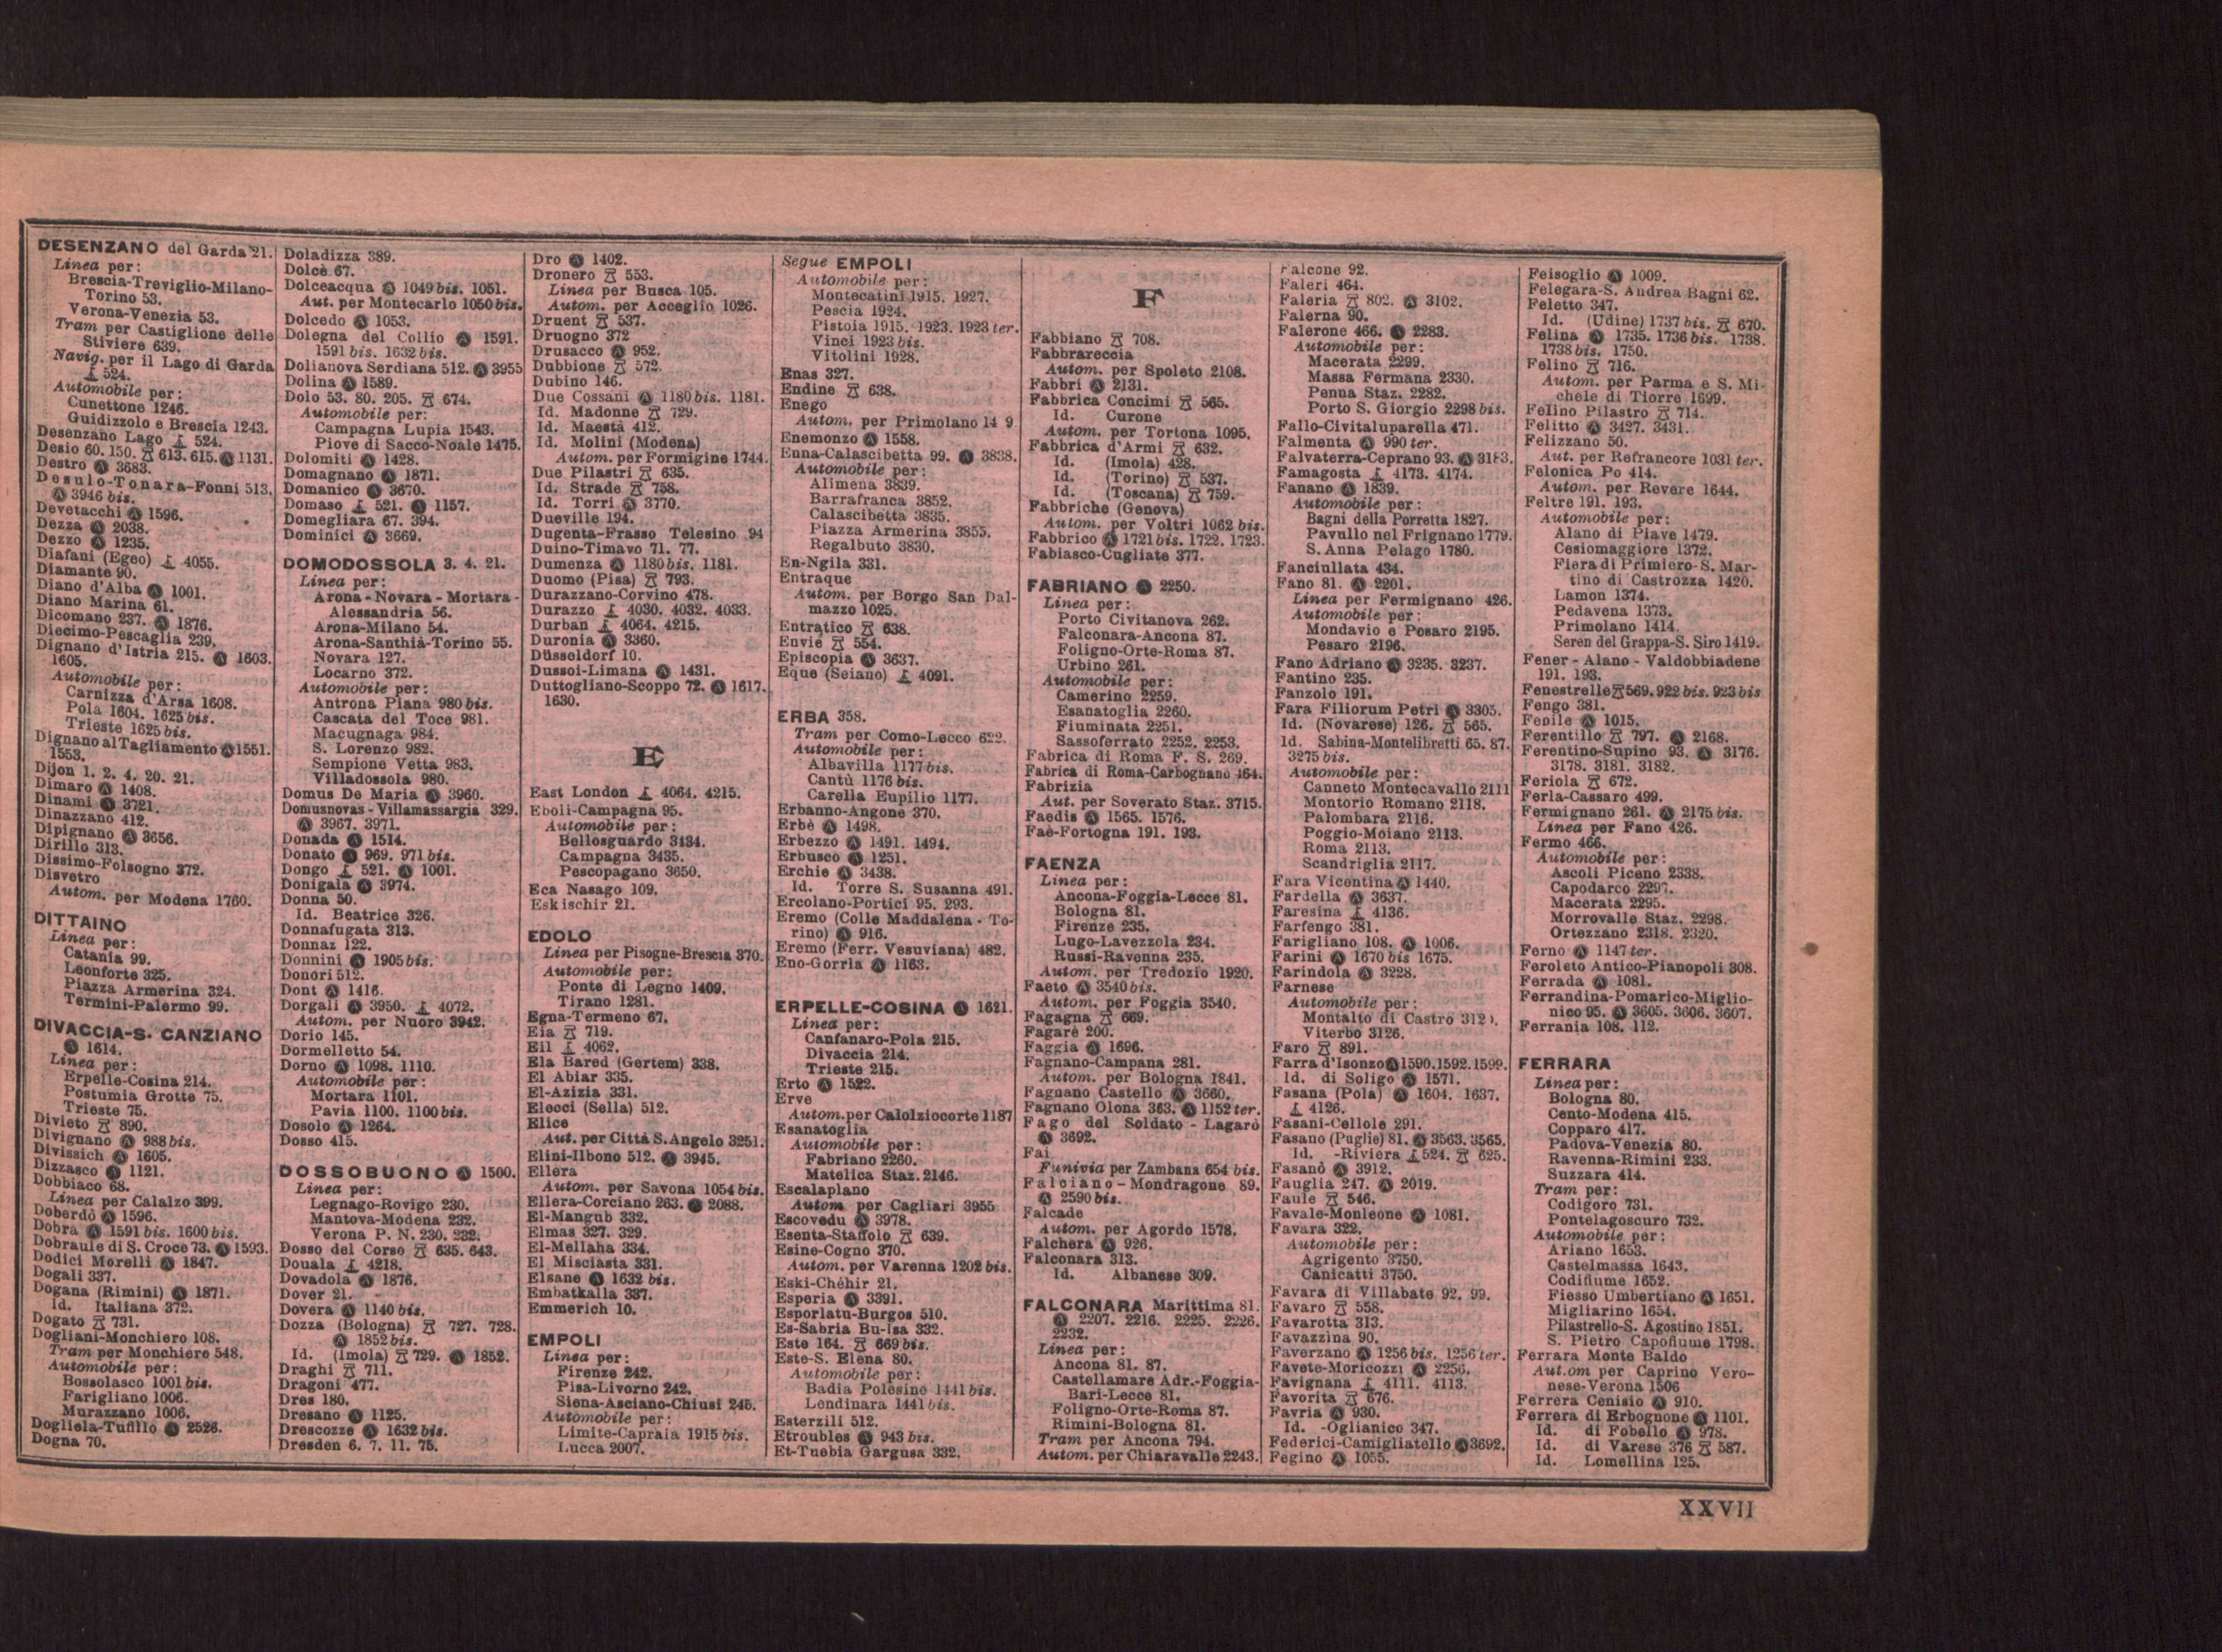 DESENZANO del Garda 21.
Linea per:
Brescia-Treviglio-Milano-
Torino 53.
Verona-Venezia 53.
Tram per Castiglione delle
Stiviere 639.
Navig. per il Lago di Garda
524.
Automobile per:
Cunettone 1246.
Guidizzolo e Brescia 1243.
Desenzano Lago 524.
Desio 60. 150. 613. 615. Ⓐ 1131.
Destro Ⓐ 3683.
Desulo-Tonara-Fonni 513.
Ⓐ 3946 bis.
Devetacchi Ⓐ 1596.
Dezza Ⓐ 2038.
Dezzo Ⓐ 1235.
Diafani (Egeo) 4055.
Diamante 90.
Diano d'Alba Ⓐ 1001.
Diano Marina 61.
Dicomano 237. Ⓐ 1876.
Diecimo-Pescaglia 239.
Dignano d'Istria 215. Ⓐ 1603.
1605.
Automobile per:
Carnizza d'Arsa 1608.
Pola 1604. 1625 bis.
Trieste 1625 bis.
Dignano al Tagliamento Ⓐ 1551.
1553.
Dijon 1. 2. 4. 20. 21.
Dimaro Ⓐ 1408.
Dinami Ⓐ 3721.
Dinazzano 412.
Dipignano Ⓐ 3656.
Dirillo 313.
Dissimo-Folsogno 372.
Disvetro
Autom. per Modena 1760.
DITTAINO
Linea per:
Catania 99.
Leonforte 325.
Piazza Armerina 324.
Termini-Palermo 99.
DIVACCIA-S. CANZIANO
Ⓐ 1614.
Linea per:
Erpelle-Cosina 214.
Postumia Grotte 75.
Trieste 75.
Divieto 890.
Divignano Ⓐ 988 bis.
Divissich Ⓐ 1605.
Dizzasco Ⓐ 1121.
Dobbiaco 68.
Linea per Calalzo 399.
Doberdò Ⓐ 1596.
Dobra Ⓐ 1591 bis. 1600 bis.
Dobraule di S. Croce 73. Ⓐ 1593.
Dodici Morelli Ⓐ 1847.
Dogali 337.
Dogana (Rimini) Ⓐ 1871.
Id. Italiana 372.
Dogato 731.
Dogliani-Monchiero 108.
Tram per Monchiero 548.
Automobile per:
Bossolasco 1001 bis.
Farigliano 1006.
Murazzano 1006.
Dogliola-Tufillo Ⓐ 2526.
Dogna 70.
Doladizza 389.
Dolcè 67.
Dolceacqua Ⓐ 1049 bis. 1051.
Aut. per Montecarlo 1050 bis.
Dolcedo Ⓐ 1053.
Dolegna del Collio Ⓐ 1591.
1591 bis. 1632 bis.
Dolianova Serdiana 512. Ⓐ 3955
Dolina Ⓐ 1589.
Dolo 53. 80. 205. 674.
Automobile per:
Campagna Lupia 1543.
Piove di Sacco-Noale 1475.
Dolomiti Ⓐ 1428.
Domagnano Ⓐ 1871.
Domanico Ⓐ 3670.
Domaso 521. Ⓐ 1157.
Domegliara 67. 394.
Dominici Ⓐ 3669.
DOMODOSSOLA 3. 4. 21.
Linea per:
Arona - Novara - Mortara -
Alessandria 56.
Arona-Milano 54.
Arona-Santhià-Torino 55.
Novara 127.
Locarno 372.
Automobile per:
Antrona Piana 980 bis.
Cascata del Toce 981.
Macugnaga 984.
S. Lorenzo 982.
Sempione Vetta 983.
Villadossola 980.
Domus De Maria Ⓐ 3960.
Domusnovas-Villamassargia 329.
Ⓐ 3967. 3971.
Donada Ⓐ 1514.
Donato Ⓐ 969. 971 bis.
Dongo 521. Ⓐ 1001.
Donigala Ⓐ 3974.
Donna 50.
Id. Beatrice 326.
Donnafugata 313.
Donnaz 122.
Donnini Ⓐ 1905 bis.
Donori 512.
Dont Ⓐ 1416.
Dorgali Ⓐ 3950. 4072.
Autom. per Nuoro 3942.
Dorio 145.
Dormelletto 54.
Dorno Ⓐ 1098. 1110.
Automobile per:
Mortara 1101.
Pavia 1100. 1100 bis.
Dosolo Ⓐ 1264.
Dosso 415.
DOSSOBUONO Ⓐ 1500.
Linea per:
Legnago-Rovigo 230.
Mantova-Modena 232.
Verona P. N. 230. 232.
Dosso del Corso 635. 643.
Douala 4218.
Dovadola Ⓐ 1876.
Dover 21.
Dovera Ⓐ 1140 bis.
Dozza (Bologna) 727. 728.
Ⓐ 1852 bis.
Id. (Imola) 729. Ⓐ 1852.
Draghi 711.
Dragoni 477.
Dres 180.
Dresano Ⓐ 1125.
Drescozze Ⓐ 1632 bis.
Dresden 6. 7. 11. 75.
Dro Ⓐ 1402.
Dronero 553.
Linea per Busca 105.
Autom. per Acceglio 1026.
Druent 537.
Druogno 372
Drusacco Ⓐ 952.
Dubbione 572.
Dubino 146.
Due Cossani Ⓐ 1180 bis. 1181.
Id. Madonne 729.
Id. Maestà 412.
Id. Molini (Modena)
Autom. per Formigine 1744.
Due Pilastri 635.
Id. Strade 758.
Id. Torri Ⓐ 3770.
Dueville 194.
Dugenta-Frasso Telesino 94
Duino-Timavo 71. 77.
Dumenza Ⓐ 1180 bis. 1181.
Duomo (Pisa) 793.
Durazzano-Corvino 478.
Durazzo 4030. 4032. 4033.
Durban 4064. 4215.
Duronia Ⓐ 3360.
Düsseldorf 10.
Dussoi-Limana Ⓐ 1431.
Duttogliano-Scoppo 72. Ⓐ 1617.
1630.
E
East London 4064. 4215.
Eboli-Campagna 95.
Automobile per:
Bellosguardo 3434.
Campagna 3435.
Pescopagano 3650.
Eca Nasago 109.
Eskischir 21.
EDOLO
Linea per Pisogne-Brescia 370.
Automobile per:
Ponte di Legno 1409.
Tirano 1281.
Egna-Termeno 67.
Eia 719.
Eil 4062.
Ela Bared (Gertem) 338.
El Abiar 335.
El-Azizia 331.
Elecci (Sella) 512.
Elice
Aut. per Città S. Angelo 3251.
Elini-Ilbono 512. Ⓐ 3945.
Ellera
Autom. per Savona 1054 bis.
Ellera-Corciano 263. Ⓐ 2088.
El-Mangub 332.
Elmas 327. 329.
El-Mellaha 334.
El Misciasta 331.
Elsane Ⓐ 1632 bis.
Embatkalla 337.
Emmerich 10.
EMPOLI
Linea per:
Firenze 242.
Pisa-Livorno 242.
Siena-Asciano-Chiusi 245.
Automobile per:
Limite-Capraia 1915 bis.
Lucca 2007.
Segue EMPOLI
Automobile per:
Montecatini 1915. 1927.
Pescia 1924.
Pistoia 1915. 1923. 1923 ter.
Vinci 1923 bis.
Vitolini 1928.
Enas 327.
Endine 638.
Enego
Autom. per Primolano 14 9
Enemonzo Ⓐ 1558.
Enna-Calascibetta 99. Ⓐ 3838.
Automobile per:
Alimena 3839.
Barrafranca 3852.
Calascibetta 3835.
Piazza Armerina 3855.
Regalbuto 3830.
En-Ngila 331.
Entraque
Autom. per Borgo San Dal-
mazzo 1025.
Entratico 638.
Envie 554.
Episcopia Ⓐ 3637.
Eque (Seiano) 4091.
ERBA 358.
Tram per Como-Lecco 622.
Automobile per:
Albavilla 1177 bis.
Cantù 1176 bis.
Carella Eupilio 1177.
Erbanno-Angone 370.
Erbè Ⓐ 1498.
Erbezzo Ⓐ 1491. 1494.
Erbusco Ⓐ 1251.
Erchie Ⓐ 3438.
Id. Torre S. Susanna 491.
Ercolano-Portici 95. 293.
Eremo (Colle Maddalena - To-
rino) Ⓐ 916.
Eremo (Ferr. Vesuviana) 482.
Eno-Gorria Ⓐ 1163.
ERPELLE-COSINA Ⓐ 1621.
Linea per:
Canfanaro-Pola 215.
Divaccia 214.
Trieste 215.
Erto Ⓐ 1522.
Erve
Autom. per Calolziocorte 1187
Esanatoglia
Automobile per:
Fabriano 2260.
Matelica Staz. 2146.
Escalaplano
Autom. per Cagliari 3955
Escovedu Ⓐ 3978.
Esenta-Staffolo 639.
Esine-Cogno 370.
Autom. per Varenna 1202 bis.
Eski-Chéhir 21.
Esperia Ⓐ 3391.
Esporlatu-Burgos 510.
Es-Sabria Bu-Isa 332.
Este 164. 669 bis.
Este-S. Elena 80.
Automobile per:
Badia Polesine 1441 bis.
Lendinara 1441 bis.
Esterzili 512.
Etroubles Ⓐ 943 bis.
Et-Tuebia Gargusa 332.
F
Fabbiano 708.
Fabbrareccia
Autom. per Spoleto 2108.
Fabbri Ⓐ 2131.
Fabbrica Concimi 565.
Id. Curone
Autom. per Tortona 1095.
Fabbrica d'Armi 632.
Id. (Imola) 428.
Id. (Torino) 537.
Id. (Toscana) 759.
Fabbriche (Genova)
Autom. per Voltri 1062 bis.
Fabbrico Ⓐ 1721 bis. 1722. 1723.
Fabiasco-Cugliate 377.
FABRIANO Ⓐ 2250.
Linea per:
Porto Civitanova 262.
Falconara-Ancona 87.
Foligno-Orte-Roma 87.
Urbino 261.
Automobile per:
Camerino 2259.
Esanatoglia 2260.
Fiuminata 2251.
Sassoferrato 2252. 2253.
Fabrica di Roma F. S. 269.
Fabrica di Roma-Carbognano 464.
Fabrizia
Aut. per Soverato Staz. 3715.
Faedis Ⓐ 1565. 1576.
Faè-Fortogna 191. 193.
FAENZA
Linea per:
Ancona-Foggia-Lecce 81.
Bologna 81.
Firenze 235.
Lugo-Lavezzola 234.
Russi-Ravenna 235.
Autom. per Tredozio 1920.
Faeto Ⓐ 3540 bis.
Autom. per Foggia 3540.
Fagagna 669.
Fagarè 200.
Faggia Ⓐ 1696.
Fagnano-Campana 281.
Autom. per Bologna 1841.
Fagnano Castello Ⓐ 3660.
Fagnano Olona 363. Ⓐ 1152 ter.
Fago del Soldato - Lagarò
Ⓐ 3692.
Fai
Funivia per Zambana 654 bis.
Falciano-Mondragone 89.
Ⓐ 2590 bis.
Falcade
Autom. per Agordo 1578.
Falchera Ⓐ 926.
Falconara 313.
Id. Albanese 309.
FALCONARA Marittima 81.
Ⓐ 2207. 2216. 2225. 2226.
2232.
Linea per:
Ancona 81. 87.
Castellamare Adr.-Foggia-
Bari-Lecce 81.
Foligno-Orte-Roma 87.
Rimini-Bologna 81.
Tram per Ancona 794.
Autom. per Chiaravalle 2243.
Falcone 92.
Faleri 464.
Faleria 802. Ⓐ 3102.
Falerna 90.
Falerone 466. Ⓐ 2283.
Automobile per:
Macerata 2299.
Massa Fermana 2330.
Penna Staz. 2282.
Porto S. Giorgio 2298 bis.
Fallo-Civitaluparella 471.
Falmenta Ⓐ 990 ter.
Falvaterra-Ceprano 93. Ⓐ 3183.
Famagosta 4173. 4174.
Fanano Ⓐ 1839.
Automobile per:
Bagni della Porretta 1827.
Pavullo nel Frignano 1779.
S. Anna Pelago 1780.
Fanciullata 434.
Fano 81. Ⓐ 2201.
Linea per Fermignano 426.
Automobile per:
Mondavio e Pesaro 2195.
Pesaro 2196.
Fano Adriano Ⓐ 3235. 3237.
Fantino 235.
Fanzolo 191.
Fara Filiorum Petri Ⓐ 3305.
Id. (Novarese) 126. 565.
Id. Sabina-Montelibretti 65. 87.
3275 bis.
Automobile per:
Canneto Montecavallo 2111
Montorio Romano 2118.
Palombara 2116.
Poggio-Moiano 2113.
Roma 2113.
Scandriglia 2117.
Fara Vicentina Ⓐ 1440.
Fardella Ⓐ 3637.
Faresina 4136.
Farfengo 381.
Farigliano 108. Ⓐ 1006.
Farini Ⓐ 1670 bis 1675.
Farindola Ⓐ 3228.
Farnese
Automobile per:
Montalto di Castro 312 .
Viterbo 3126.
Faro 891.
Farra d'Isonzo Ⓐ 1590. 1592. 1599.
Id. di Soligo Ⓐ 1571.
Fasana (Pola) Ⓐ 1604. 1637.
4126.
Fasani-Cellole 291.
Fasano (Puglie) 81. Ⓐ 3563. 3565.
Id. -Riviera 524. 625.
Fasanò Ⓐ 3912.
Fauglia 247. Ⓐ 2019.
Faule 546.
Favale-Monleone Ⓐ 1081.
Favara 322.
Automobile per:
Agrigento 3750.
Canicatti 3750.
Favara di Villabate 92. 99.
Favaro 558.
Favarotta 313.
Favazzina 90.
Faverzano Ⓐ 1256 bis. 1256 ter.
Favete-Moricozzi Ⓐ 2256.
Favignana 4111. 4113.
Favorita 676.
Favria Ⓐ 930.
Id. -Oglianico 347.
Federici-Camigliatello Ⓐ 3692.
Fegino Ⓐ 1055.
Feisoglio Ⓐ 1009.
Felegara-S. Andrea Bagni 62.
Feletto 347.
Id. (Udine) 1737 bis. 670.
Felina Ⓐ 1735. 1736 bis. 1738.
1738 bis. 1750.
Felino 716.
Autom. per Parma e S. Mi-
chele di Tiorre 1699.
Felino Pilastro 714.
Felitto Ⓐ 3427. 3431.
Felizzano 50.
Aut. per Refrancore 1031 ter.
Felonica Po 414.
Autom. per Revere 1644.
Feltre 191. 193.
Automobile per:
Alano di Piave 1479.
Cesiomaggiore 1372.
Fiera di Primiero-S. Mar-
tino di Castrozza 1420.
Lamon 1374.
Pedavena 1373.
Primolano 1414.
Seren del Grappa-S. Siro 1419.
Fener - Alano - Valdobbiadene
191. 193.
Fenestrelle 569. 922 bis. 923 bis
Fengo 381.
Fenile Ⓐ 1015.
Ferentillo 797. Ⓐ 2168.
Ferentino-Supino 93. Ⓐ 3176.
3178. 3181. 3182.
Feriola 672.
Ferla-Cassaro 499.
Fermignano 261. Ⓐ 2175 bis.
Linea per Fano 426.
Fermo 466.
Automobile per:
Ascoli Piceno 2338.
Capodarco 2297.
Macerata 2295.
Morrovalle Staz. 2298.
Ortezzano 2318. 2320.
Ferno Ⓐ 1147 ter.
Feroleto Antico-Pianopoli 308.
Ferrada Ⓐ 1081.
Ferrandina-Pomarico-Miglio-
nico 95. Ⓐ 3605. 3606. 3607.
Ferrania 108. 112.
FERRARA
Linea per:
Bologna 80.
Cento-Modena 415.
Copparo 417.
Padova-Venezia 80.
Ravenna-Rimini 233.
Suzzara 414.
Tram per:
Codigoro 731.
Pontelagoscuro 732.
Automobile per:
Ariano 1653.
Castelmassa 1643.
Codifiume 1652.
Fiesso Umbertiano Ⓐ 1651.
Migliarino 1654.
Pilastrello-S. Agostino 1851.
S. Pietro Capofiume 1798.
Ferrara Monte Baldo
Aut.om per Caprino Vero-
nese-Verona 1506
Ferrera Cenisio Ⓐ 910.
Ferrera di Erbognone Ⓐ 1101.
Id. di Fobello Ⓐ 978.
Id. di Varese 376 587.
Id. Lomellina 125.
XXVII